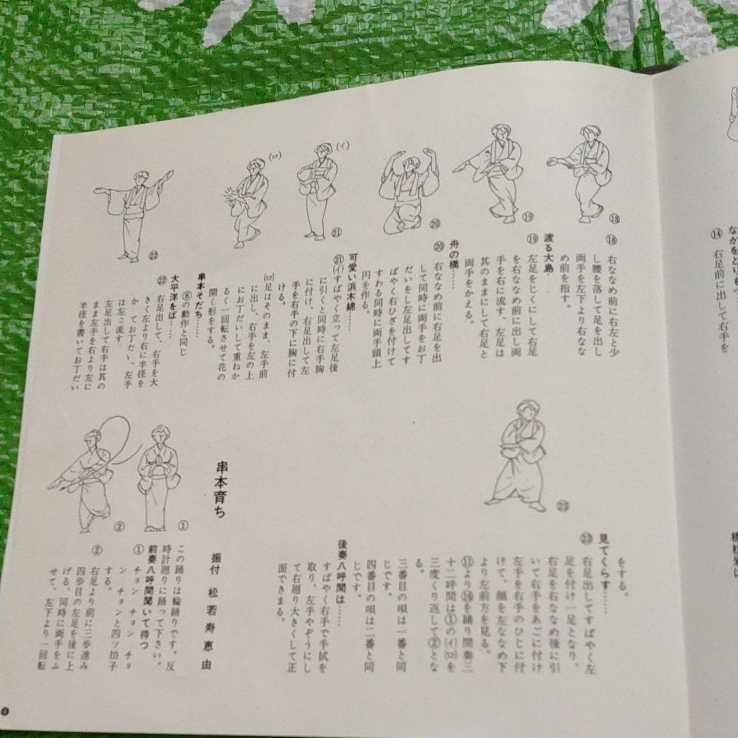 ⑱
⑲
⑳
(イ)
㉑
(ロ)
㉒
⑱ 右ななめ前に右左と少
し腰を落して足を出し
両手を左下より右なな
め前を指す。
渡る大島…
⑲ 左足をとくにして右足
を右ななめ前に出し両
手を右に流す、左足は
其のままにして右足と
両手をかえる。
舟の橋……
⑳ 右ななめ前に右足を出
して同時に両手をお丁
だいをし左足出してす
ばやく右ひざを付けて
すわる同時に両手頭上
円を作る。
可愛い浜木綿……
㉑(イ)すばやく立って左足後
に引くと同時に右手胸
に付け、右足出して左
手を右手の下に胸に付
ける。
(ロ)足はそのまま、左手前
に出し、右手を左の上
にお丁だいして重ねか
るく一回転させて花の
開く形をする。
串本そだち……
⑧の動作と同じ
太平洋をば……
㉒ 右足出して、右手を大
きく左より右に半径を
かてお丁だい、左手
は左に流す
左足出して右手は其の
まま左手を右より左に
半径を書いてお丁だい
㉓
をする。
見てくらす……
㉓ 右足出してすばやく左
足を付け一足となり、
右足を右ななめ後に引
いて右手をあごに付け
左手を右手のひじに付
けて、顔を左ななめ下
より左前方を見る。
十二呼間は①の(イ)(ロ)を
三度くり返して②とな
る。
三番目の唄は一番と同
じです。
四番目の唄は二番と同
じです。
後奏八呼間は……
すばやく右手で手拭を
取り、左手やぞうにし
て右廻り大きくして正
面できまる。
串本育ち
振付 松若寿恵由
この踊りは輪踊りです。反
時計廻りに踊って下さい。
前奏八呼間聞いて待つ
① チョン チョン チョ
ン チョンと四ツ拍子
する。
② 右足より前に三歩進み
四歩目の左足を後に上
げる、同時に両手をふ
せて、左下より一回転
①
②
⑭ 右足前に出して右手を